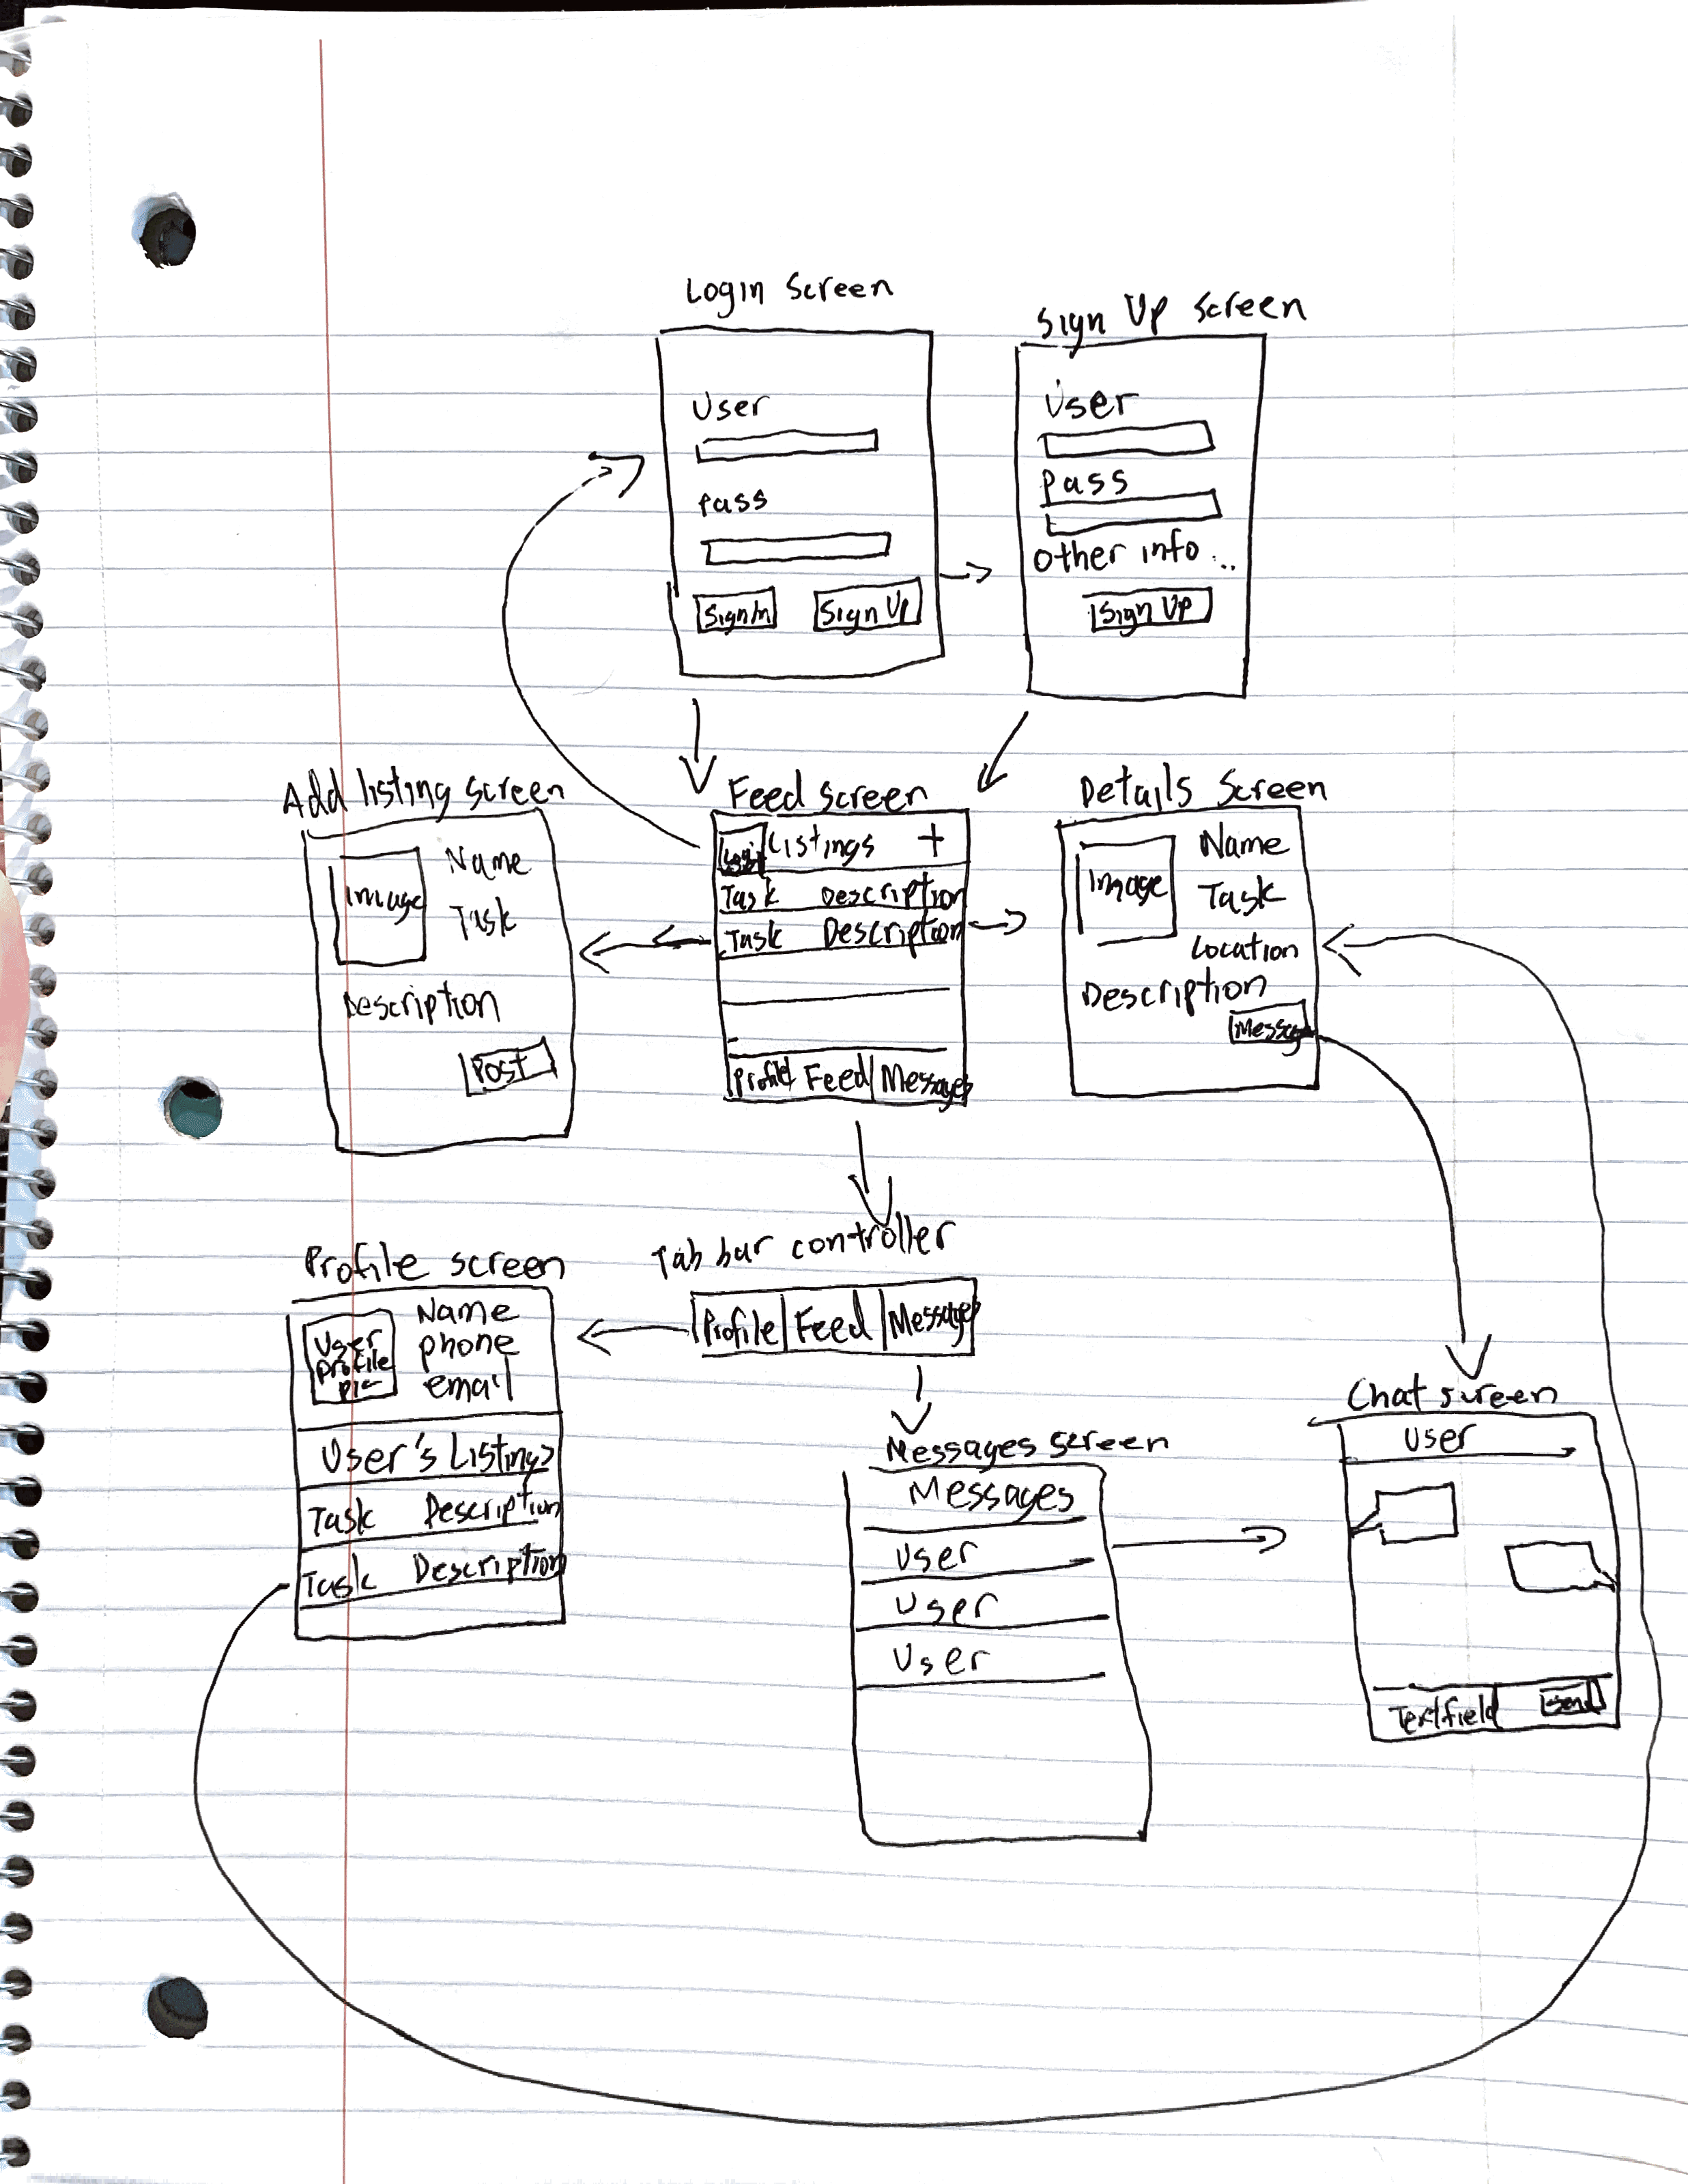 Login Screen
User
Pass
Sign In Sign Up
Sign Up Screen
User
Pass
Other info ...
Sign Up
Add listing screen
Image Name
Task
Description
Post
Feed screen
Listings +
Task Description
Task Description
Profile Feed Messages
Details Screen
Image Name
Task
Location
Description
Message
Tab bar controller
Profile Feed Messages
Profile screen
User Profile Pic
Name
phone
email
User's Listings
Task Description
Task Description
Messages screen
Messages
User
User
User
Chat screen
User
Textfield Send